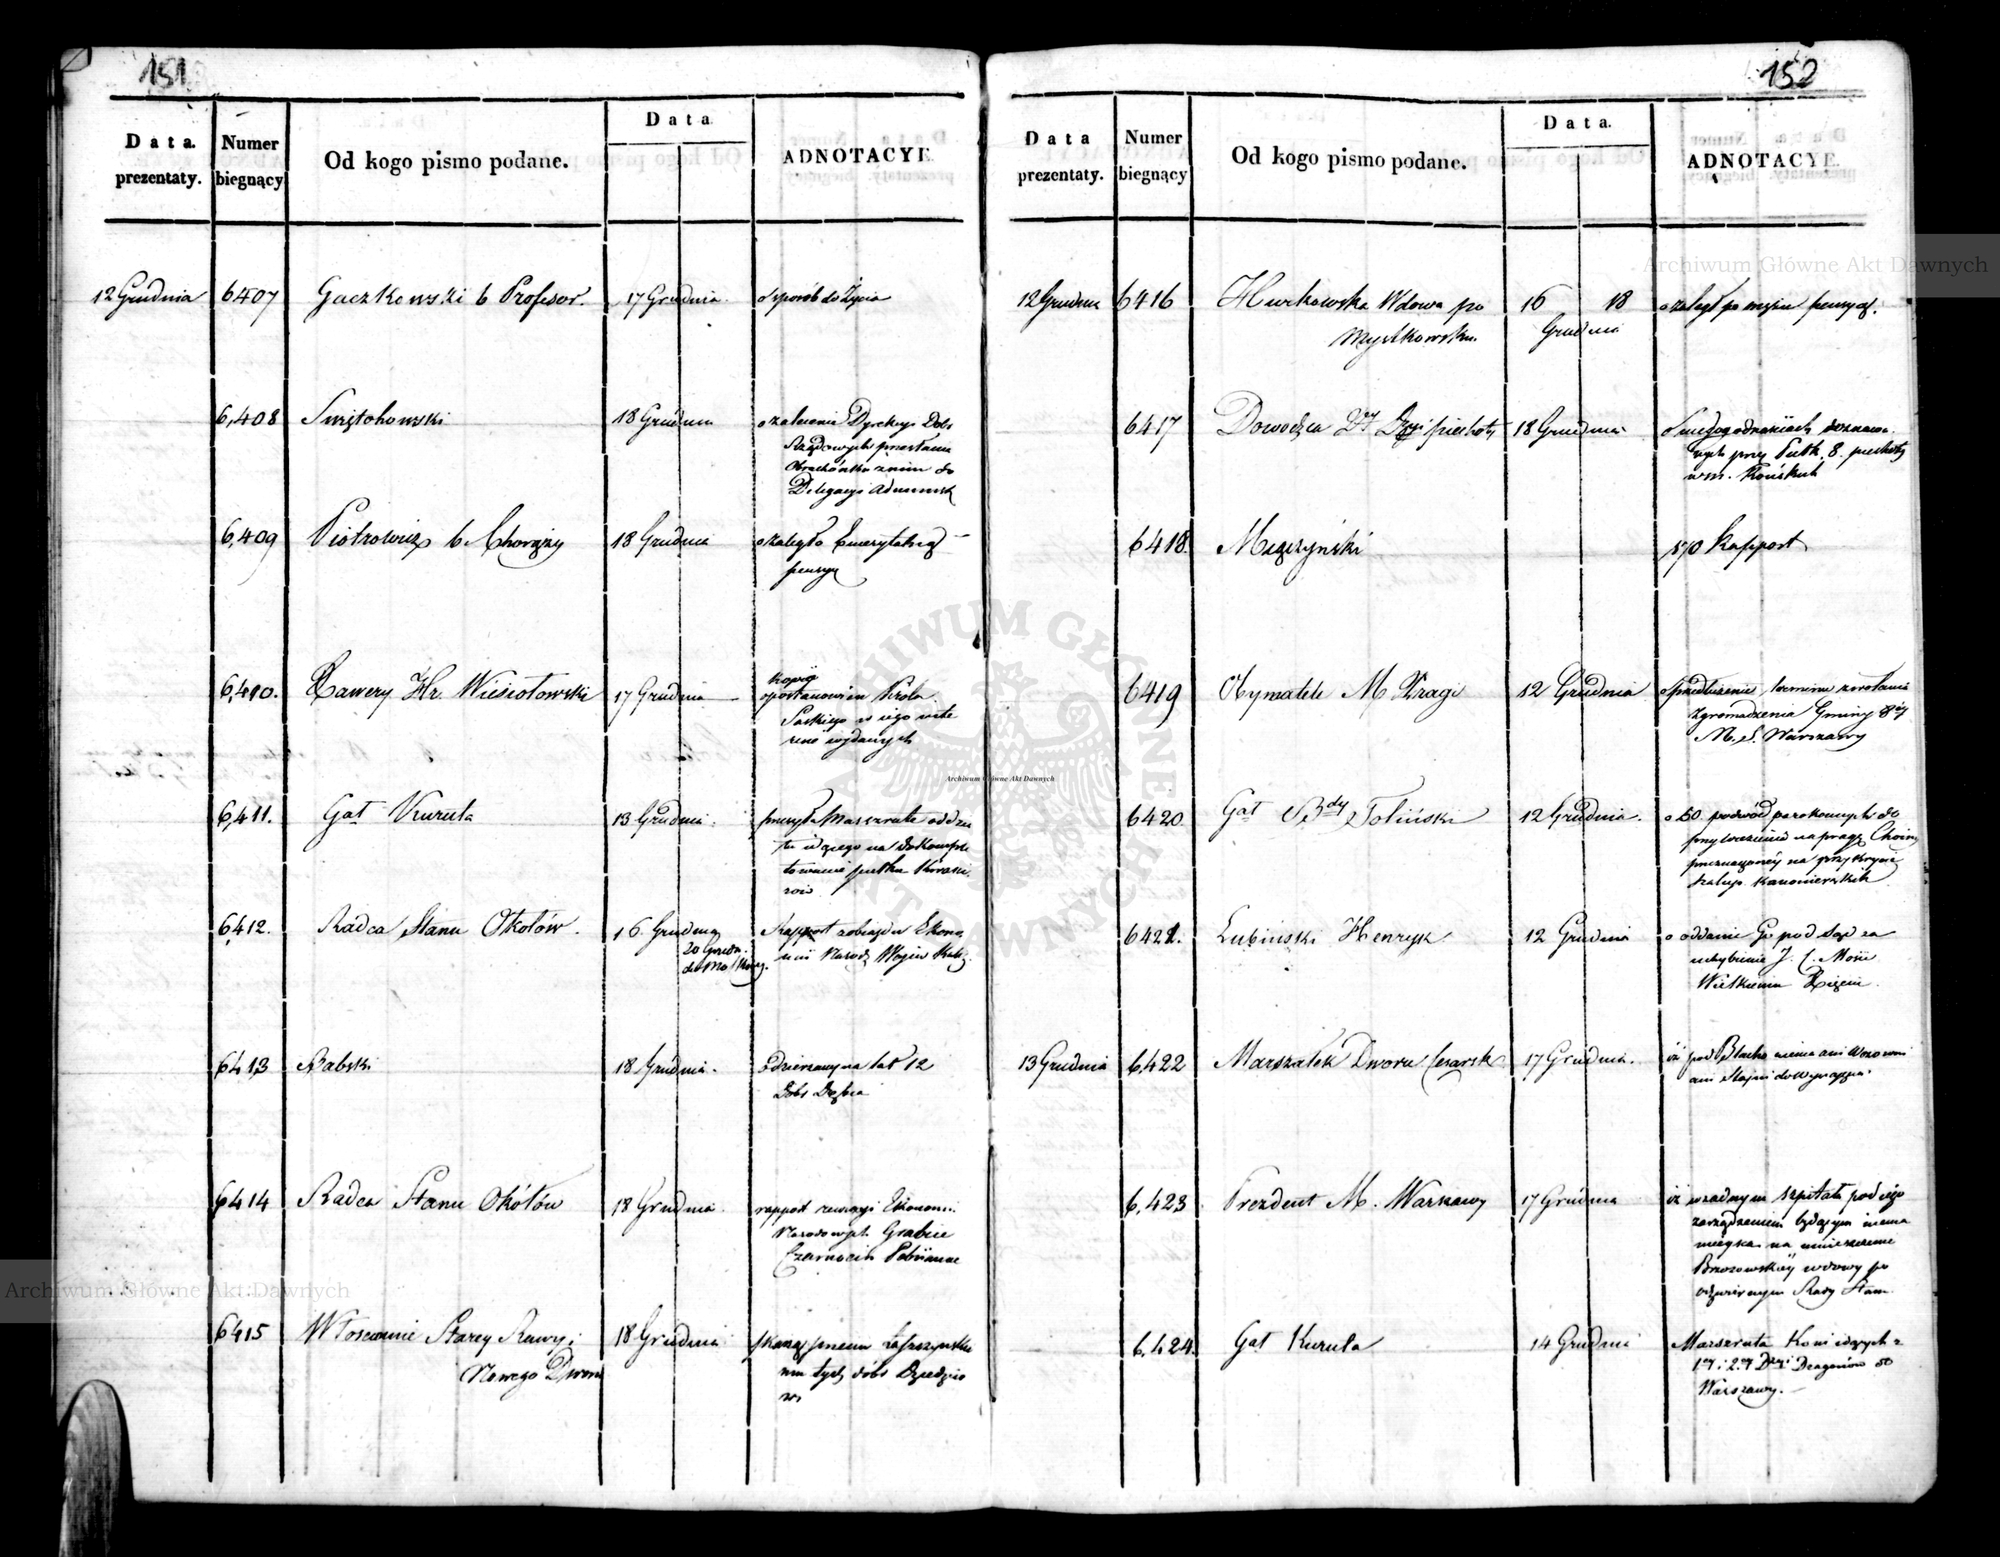 151
Data prezentaty.
Numer biegnący
Od kogo pismo podane.
Data
ADNOTACYE.
12 Grudnia 6407 Gaczkowski b Profesor. 17 Grudnia. o sposób do Życia
6,408 Swiętochowski 18 Grudnia
o zalecenie Dyrekcyi Dobr
Rządowych przesłania
Obrachónku z nim do
Delegacyi
6,409 Piotrowicz b. Chorąży 18 Grudnia o zaległą Emerytalną
pensyą
6,410. Xawery Hr. Wiesiołowski 17 Grudnia
kopią
postanowien Króla
Saskiego w iego inte
ressie wydanych
6,411. Gał Kuruta 13 Grudnia
Marszrutę oddzia
łu idącego na dokomple
towanie pułku Kirassie
rów
6,412. Radca Stanu Okołów. 16. Grudnia
20 Grudn.
Rapport z obiazdu Ekono
mii Narod. Wojew Kalis.
6413 Babski 18 Grudnia.
o dzierzawę na lat 12
Dobr Dębia
6414 Radca Stanu Okołów 18 Grudnia.
rapport rewizyi Ekonomii
Narodowych Grabice
Czarnocin Pabiianice
6415 Włościanie Starey Rawy i 18 Grudnia
Nowego Dworu
skarżą
tych dóbr Dziedzico
wi
152
Data prezentaty.
Numer biegnący
Od kogo pismo podane.
Data.
ADNOTACYE.
12 Grudnia 6416 Hurkowska Wdowa po 16 18 o zaległą po mężu pensyą.
Myszkowsku. Grudnia
6417 Dowódca 2éj Dyzi piechoty 18 Grudnia
o niedogodnościach doznawa
nych przez Pułk 8. piechoty
w m. Końskich
6418. Męczyński Rapport
6419 Obywatele M Pragi 12 Grudnia
o przedłużenie terminu zwołania
Zgromadzenia Gminy 8éj
M. S. Warszawy
6420 Gał Bdy Toliński 12 Grudnia.
o 50 podwód parokonnych do
przywiezienia na pragę Choiny
przeznaczonéy na przykrycie
szałasz kanonierskich
6421. Łubiński Henryk 12 Grudnia
o oddanie Go pod Sąd za
uchybienie J. C. Mości
Wielkiemu Xięciu
13 Grudnia 6,422 Marszałek Dworu Cesarsk 17 Grudnia.
iż pod Blachą niema ani Wozowni
ani Stajni do wynajęcia
6,423 Prezdent M. Warszawy 17 Grudnia
iż w żadnym szpitalu pod iego
zarządzeniem będącym niema
mieysca na umieszczenie
Brzozowskiéy wdowy po
odźwiernym Rady Stanu.
6,424. Gał Kuruta 14 Grudnia
Marszruta Koni idących z
1éy i 2éy Dyzi Dragonów do
Warszawy.
Archiwum Główne Akt Dawnych
ARCHIWUM GŁÓWNE AKT DAWNYCH
Archiwum Główne Akt Dawnych
Archiwum Główne Akt Dawnych